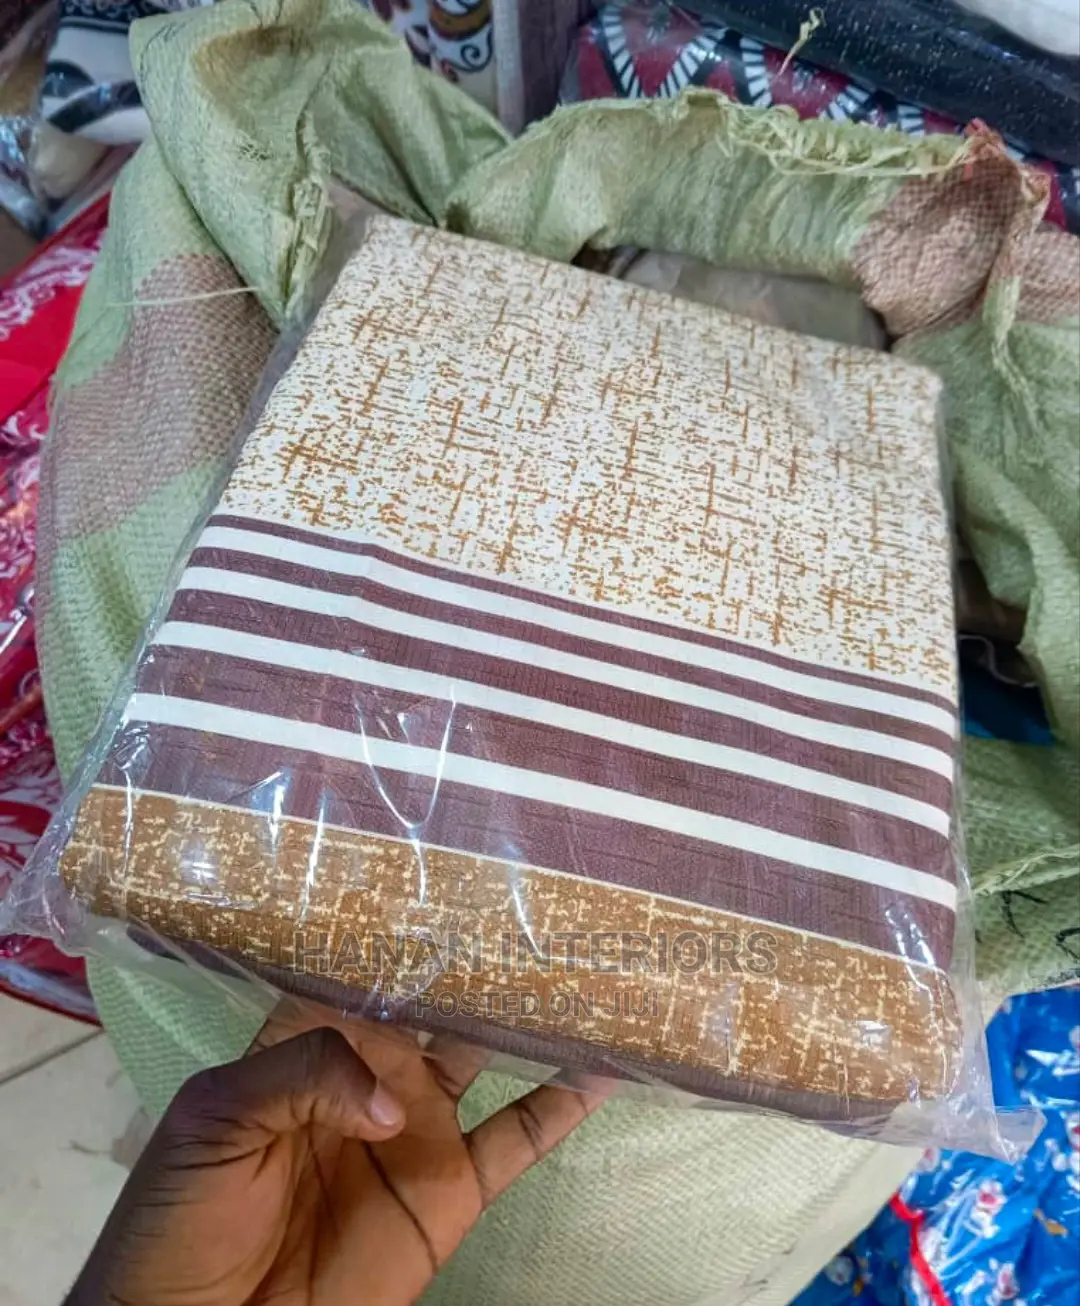 HANAN INTERIORS
POSTED ON JIJI